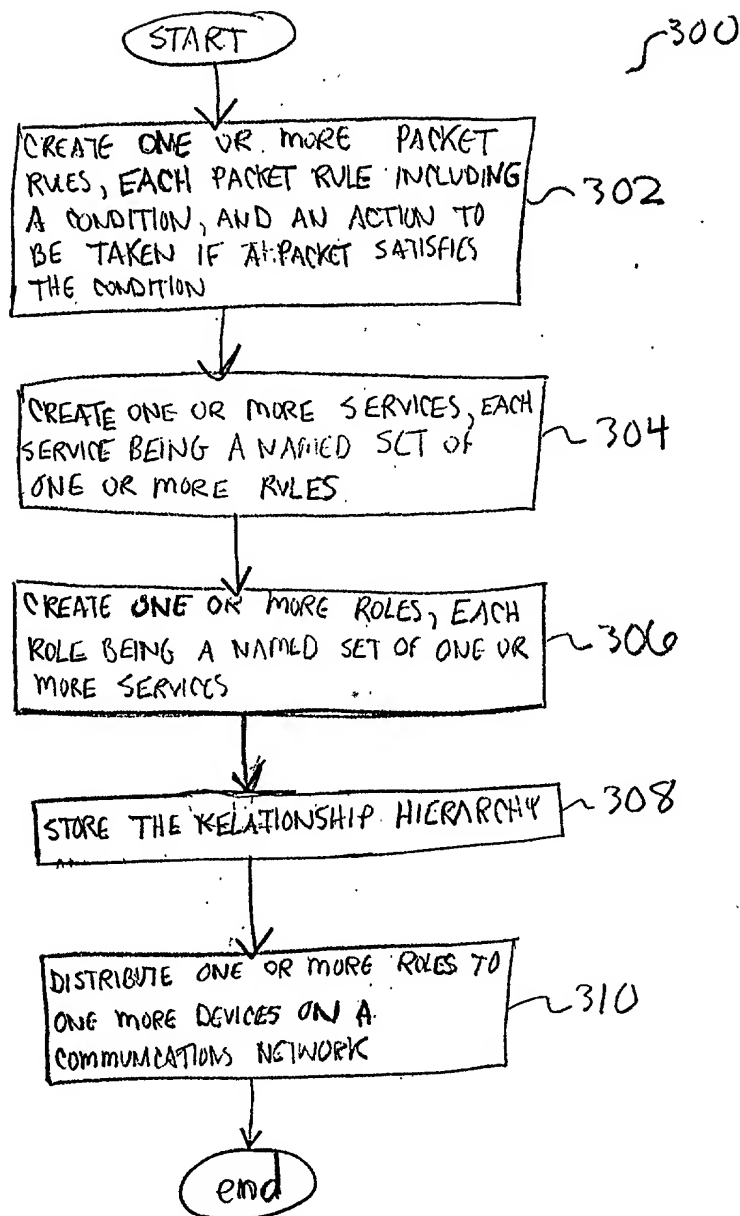 START
300
CREATE ONE OR MORE PACKET
RULES, EACH PACKET RULE INCLUDING
A CONDITION, AND AN ACTION TO
BE TAKEN IF A PACKET SATISFIES
THE CONDITION
302
CREATE ONE OR MORE SERVICES, EACH
SERVICE BEING A NAMED SET OF
ONE OR MORE RULES.
304
CREATE ONE OR MORE ROLES, EACH
ROLE BEING A NAMED SET OF ONE OR
MORE SERVICES
306
STORE THE RELATIONSHIP HIERARCHY
308
DISTRIBUTE ONE OR MORE ROLES TO
ONE MORE DEVICES ON A
COMMUNICATIONS NETWORK
310
end